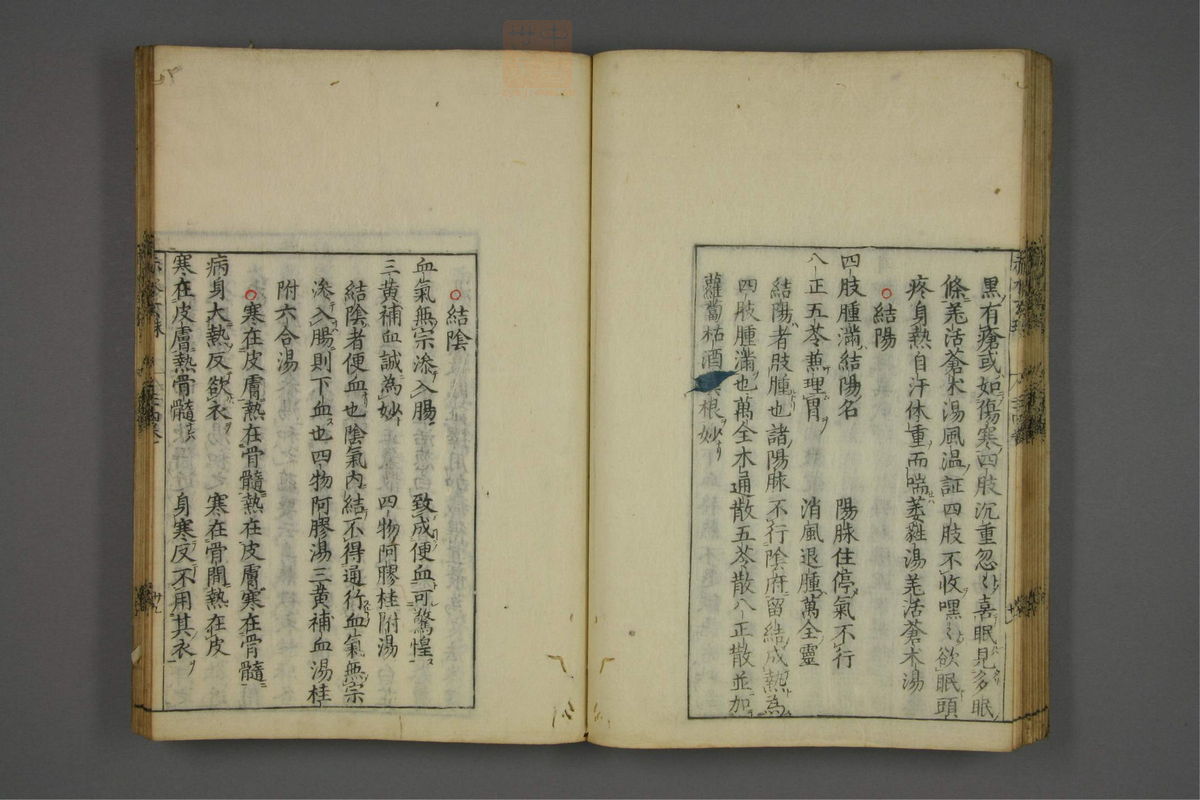 黒有瘡或如傷寒四肢沉重忽〻喜眠見多眠
條羗活蒼朮湯風温証四肢不收嘿〻欲眠頭
疼身熱自汗体重而喘葳蕤湯羗活蒼朮湯
○結陽
四肢腫滿結陽名　陽脉住停氣不行
八正五苓兼理胃　消風退腫萬全靈
結陽者肢腫也諸陽脉不行陰府留結成熱為
四肢腫滿也萬全木通散五苓散八正散並加
蘿蔔枯酒根妙
○結陰
血氣無宗滲入腸　致成便血可驚惶
三黄補血誠為妙　四物阿膠桂附湯
結陰者便血也陰氣内結不得通行血氣無宗
滲入腸則下血也四物阿膠湯三黄補血湯桂
附六合湯
○寒在皮膚熱在骨髓熱在皮膚寒在骨髓
病身大熱反欲衣　寒在骨間熱在皮
寒在皮膚熱骨髓　身寒反不用其衣